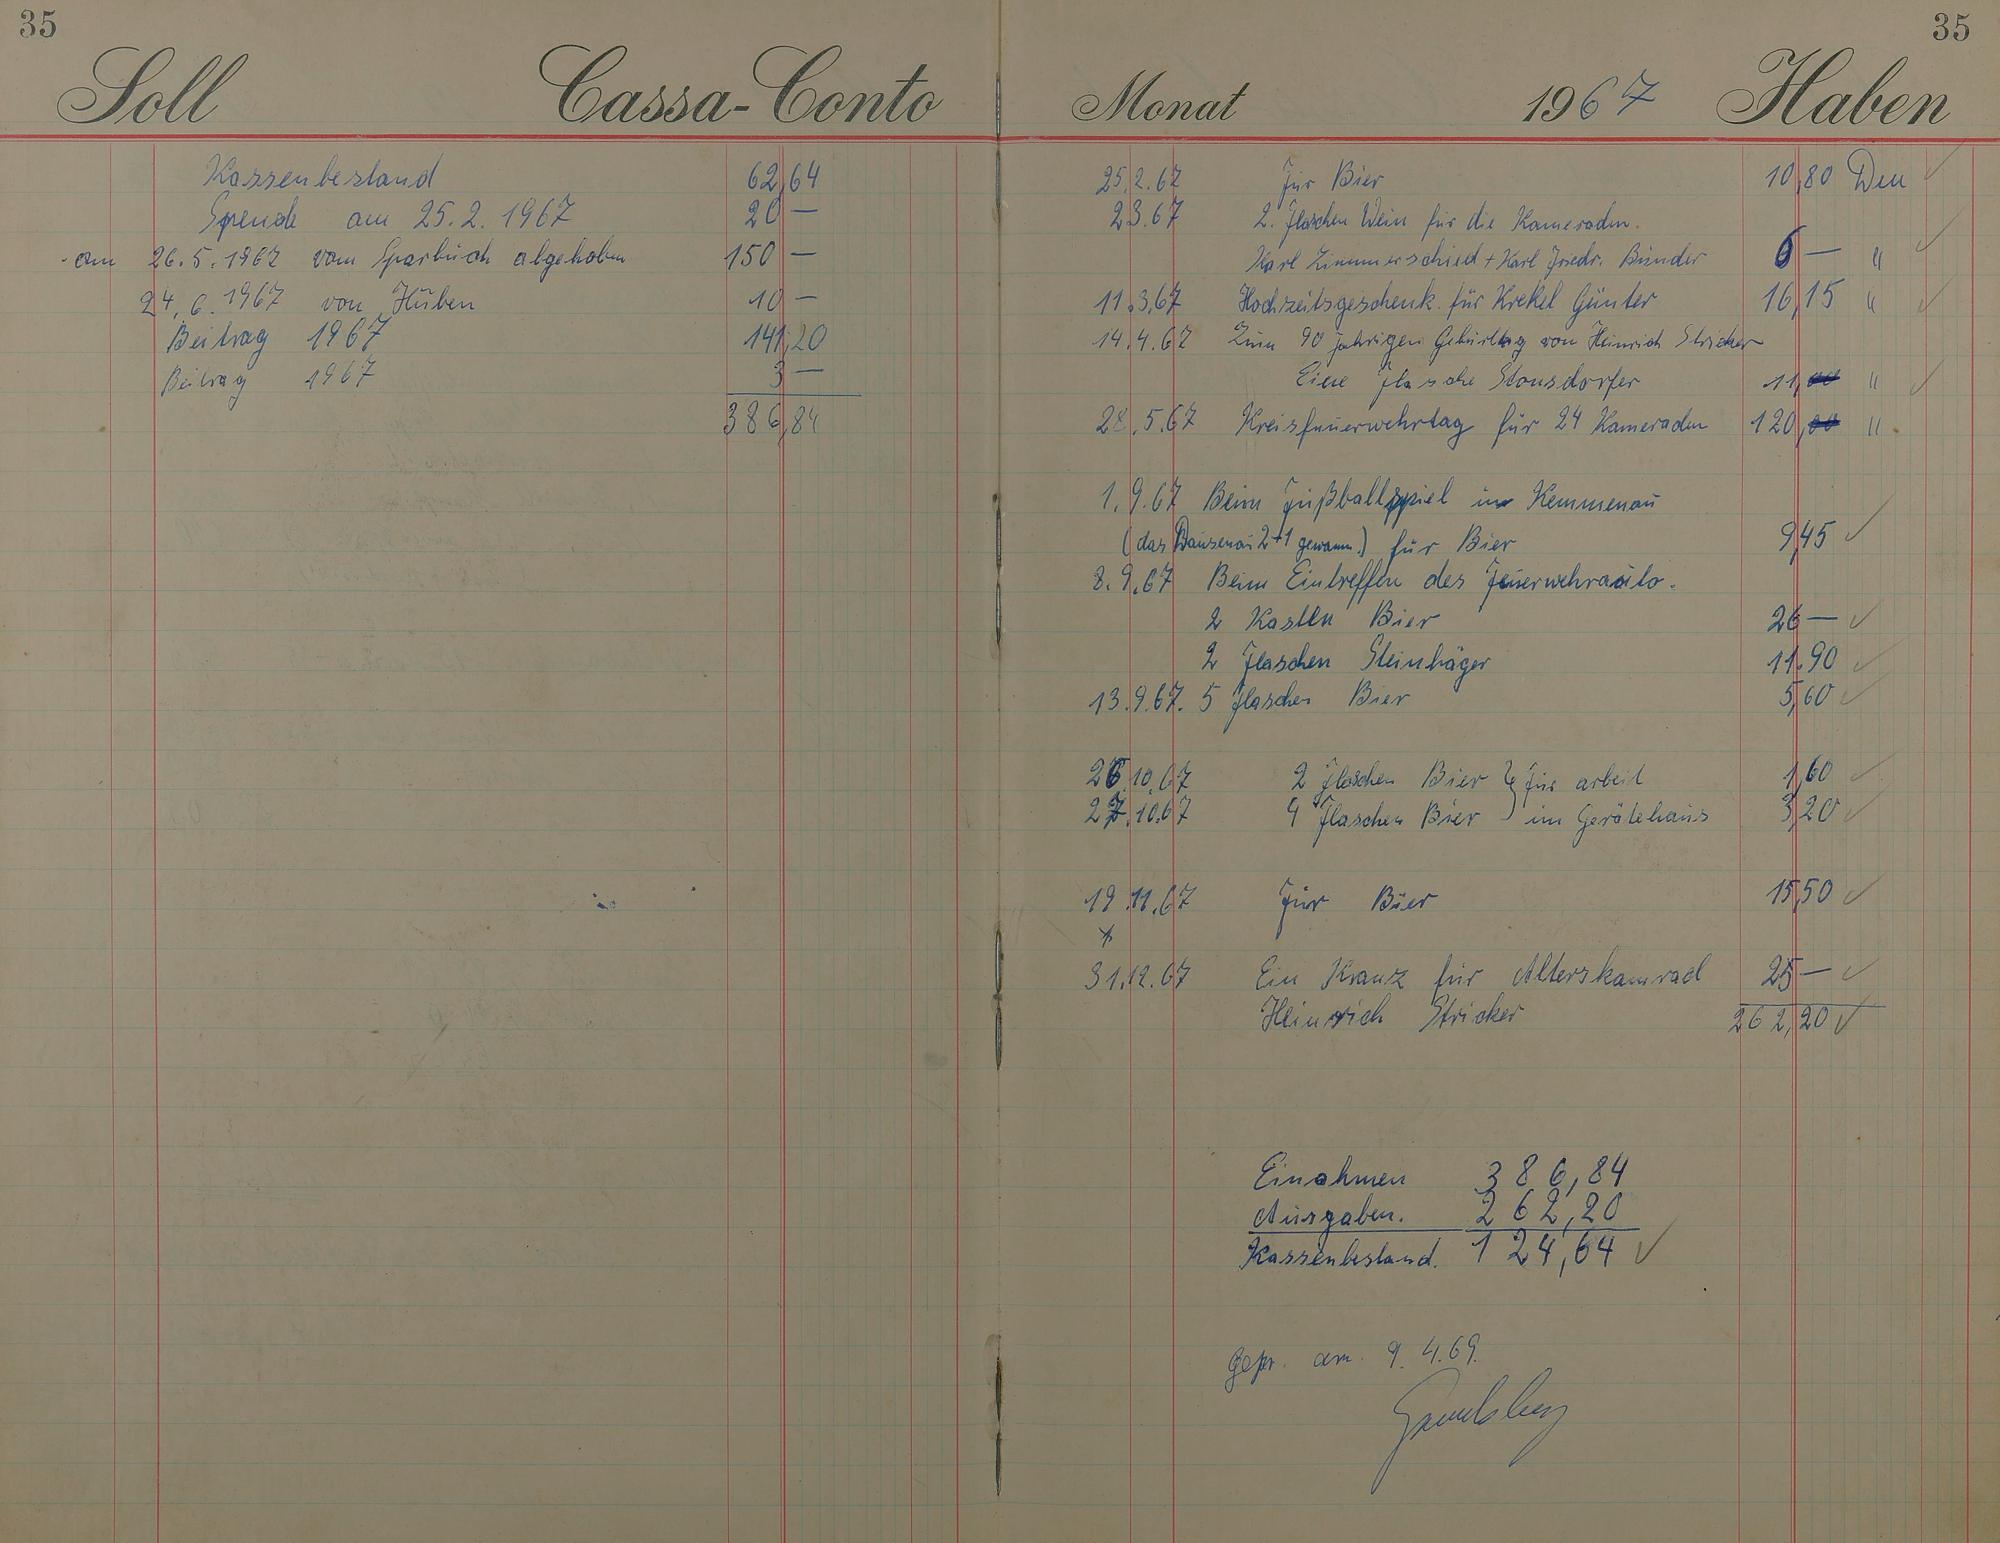 35
Soll Cassa-Conto
Kassenbestand 62,64
Spende am 25.2.1967 20 —
am 26.5.1967 vom Sparbuch abgehoben 150 —
24.6.1967 von Huben 10 —
Beitrag 1967 141,20
Beitrag 1967 3 —
386,84
35
Monat 1967 Haben
25.2.67 Für Bier 10,80 Den
2.3.67 2. Flaschen Wein für die Kameraden.
Karl Zimmerschied + Karl Friedr. Bünder 6 — "
11.3.67 Hochzeitsgeschenk für Krekel Günter 16,15 "
14.4.67 Zum 90 jahrigen Geburtag von Heinrich Stricker
Eine Flasche Stonsdorfer 11,00 "
28.5.67 Kreisfeuerwehrtag für 24 Kameraden 120,00 "
1.9.67 Beim Fußballspiel in Kemmenau
(das Dausenau 2+1 gewann.) für Bier 9,45
8.9.67 Beim Eintreffen des Feuerwehrauto.
2 Kasten Bier 26 —
2 Flaschen Steinhäger 11.90
13.9.67. 5 Flaschen Bier 5,60
26.10.67 2 Flaschen Bier } für arbeit 1,60
27.10.67 4 Flaschen Bier } im Gerätehaus 3,20
19.11.67 Für Bier 15,50
31.12.67 Ein Kranz für Alterskamrad 25 —
Heinrich Stricker 262,20
Einahmen 386,84
Ausgaben. 262,20
Kassenbestand. 124,64
gepr. am. 9.4.69.